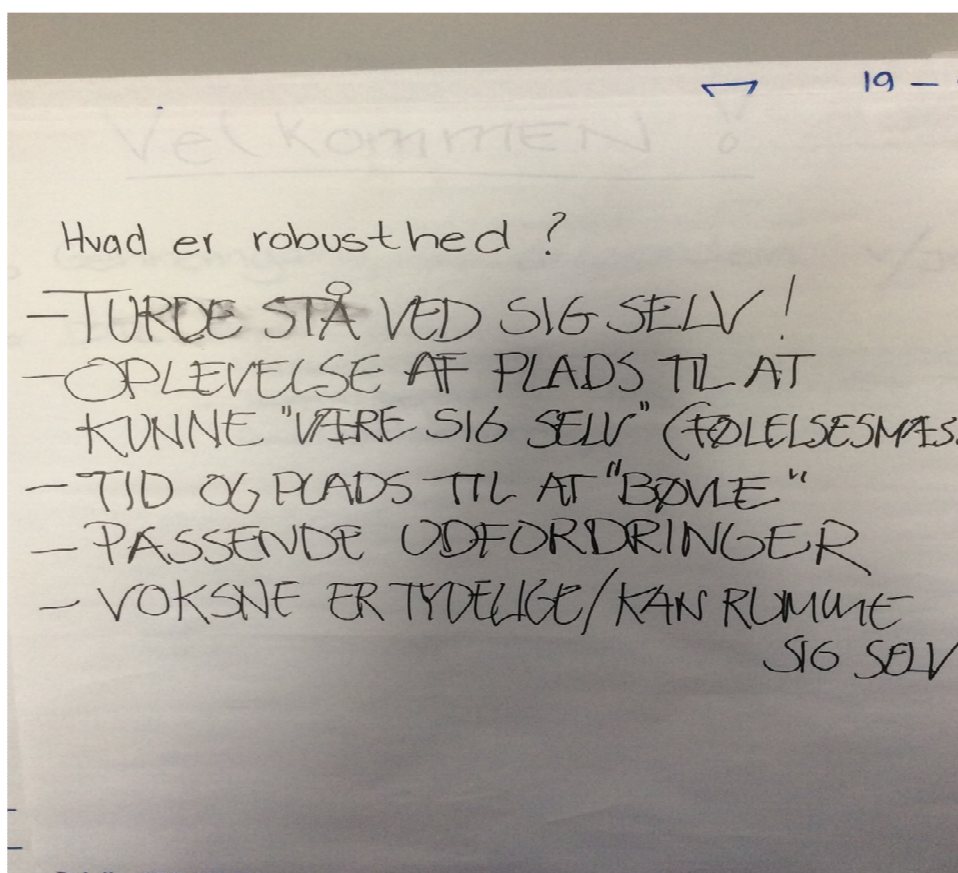 19 –
VelkommEN !
Hvad er robusthed ?
– TURDE STÅ VED SIG SELV !
– OPLEVELSE AF PLADS TIL AT
KUNNE "VÆRE SIG SELV" (FØLELSESMÆS
– TID OG PLADS TIL AT "BØVLE"
– PASSENDE UDFORDRINGER
– VOKSNE ER TYDELIGE/KAN RUMME
SIG SELV